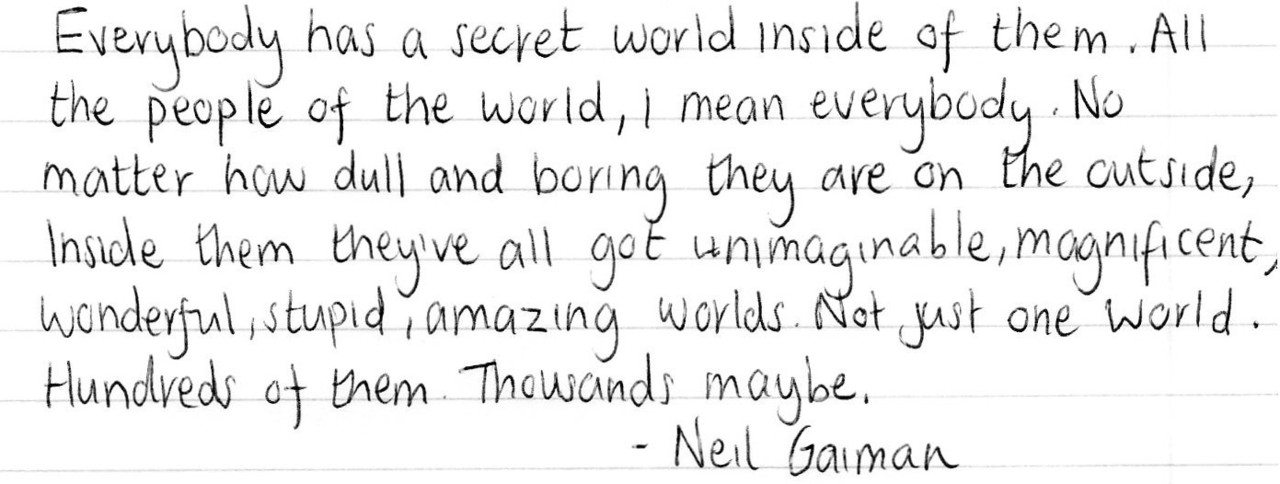 Everybody has a secret world inside of them. All
the people of the world, I mean everybody. No
matter how dull and boring they are on the outside,
Inside them they've all got unimaginable, magnificent,
wonderful, stupid, amazing worlds. Not just one world.
Hundreds of them. Thousands maybe.
- Neil Gaiman